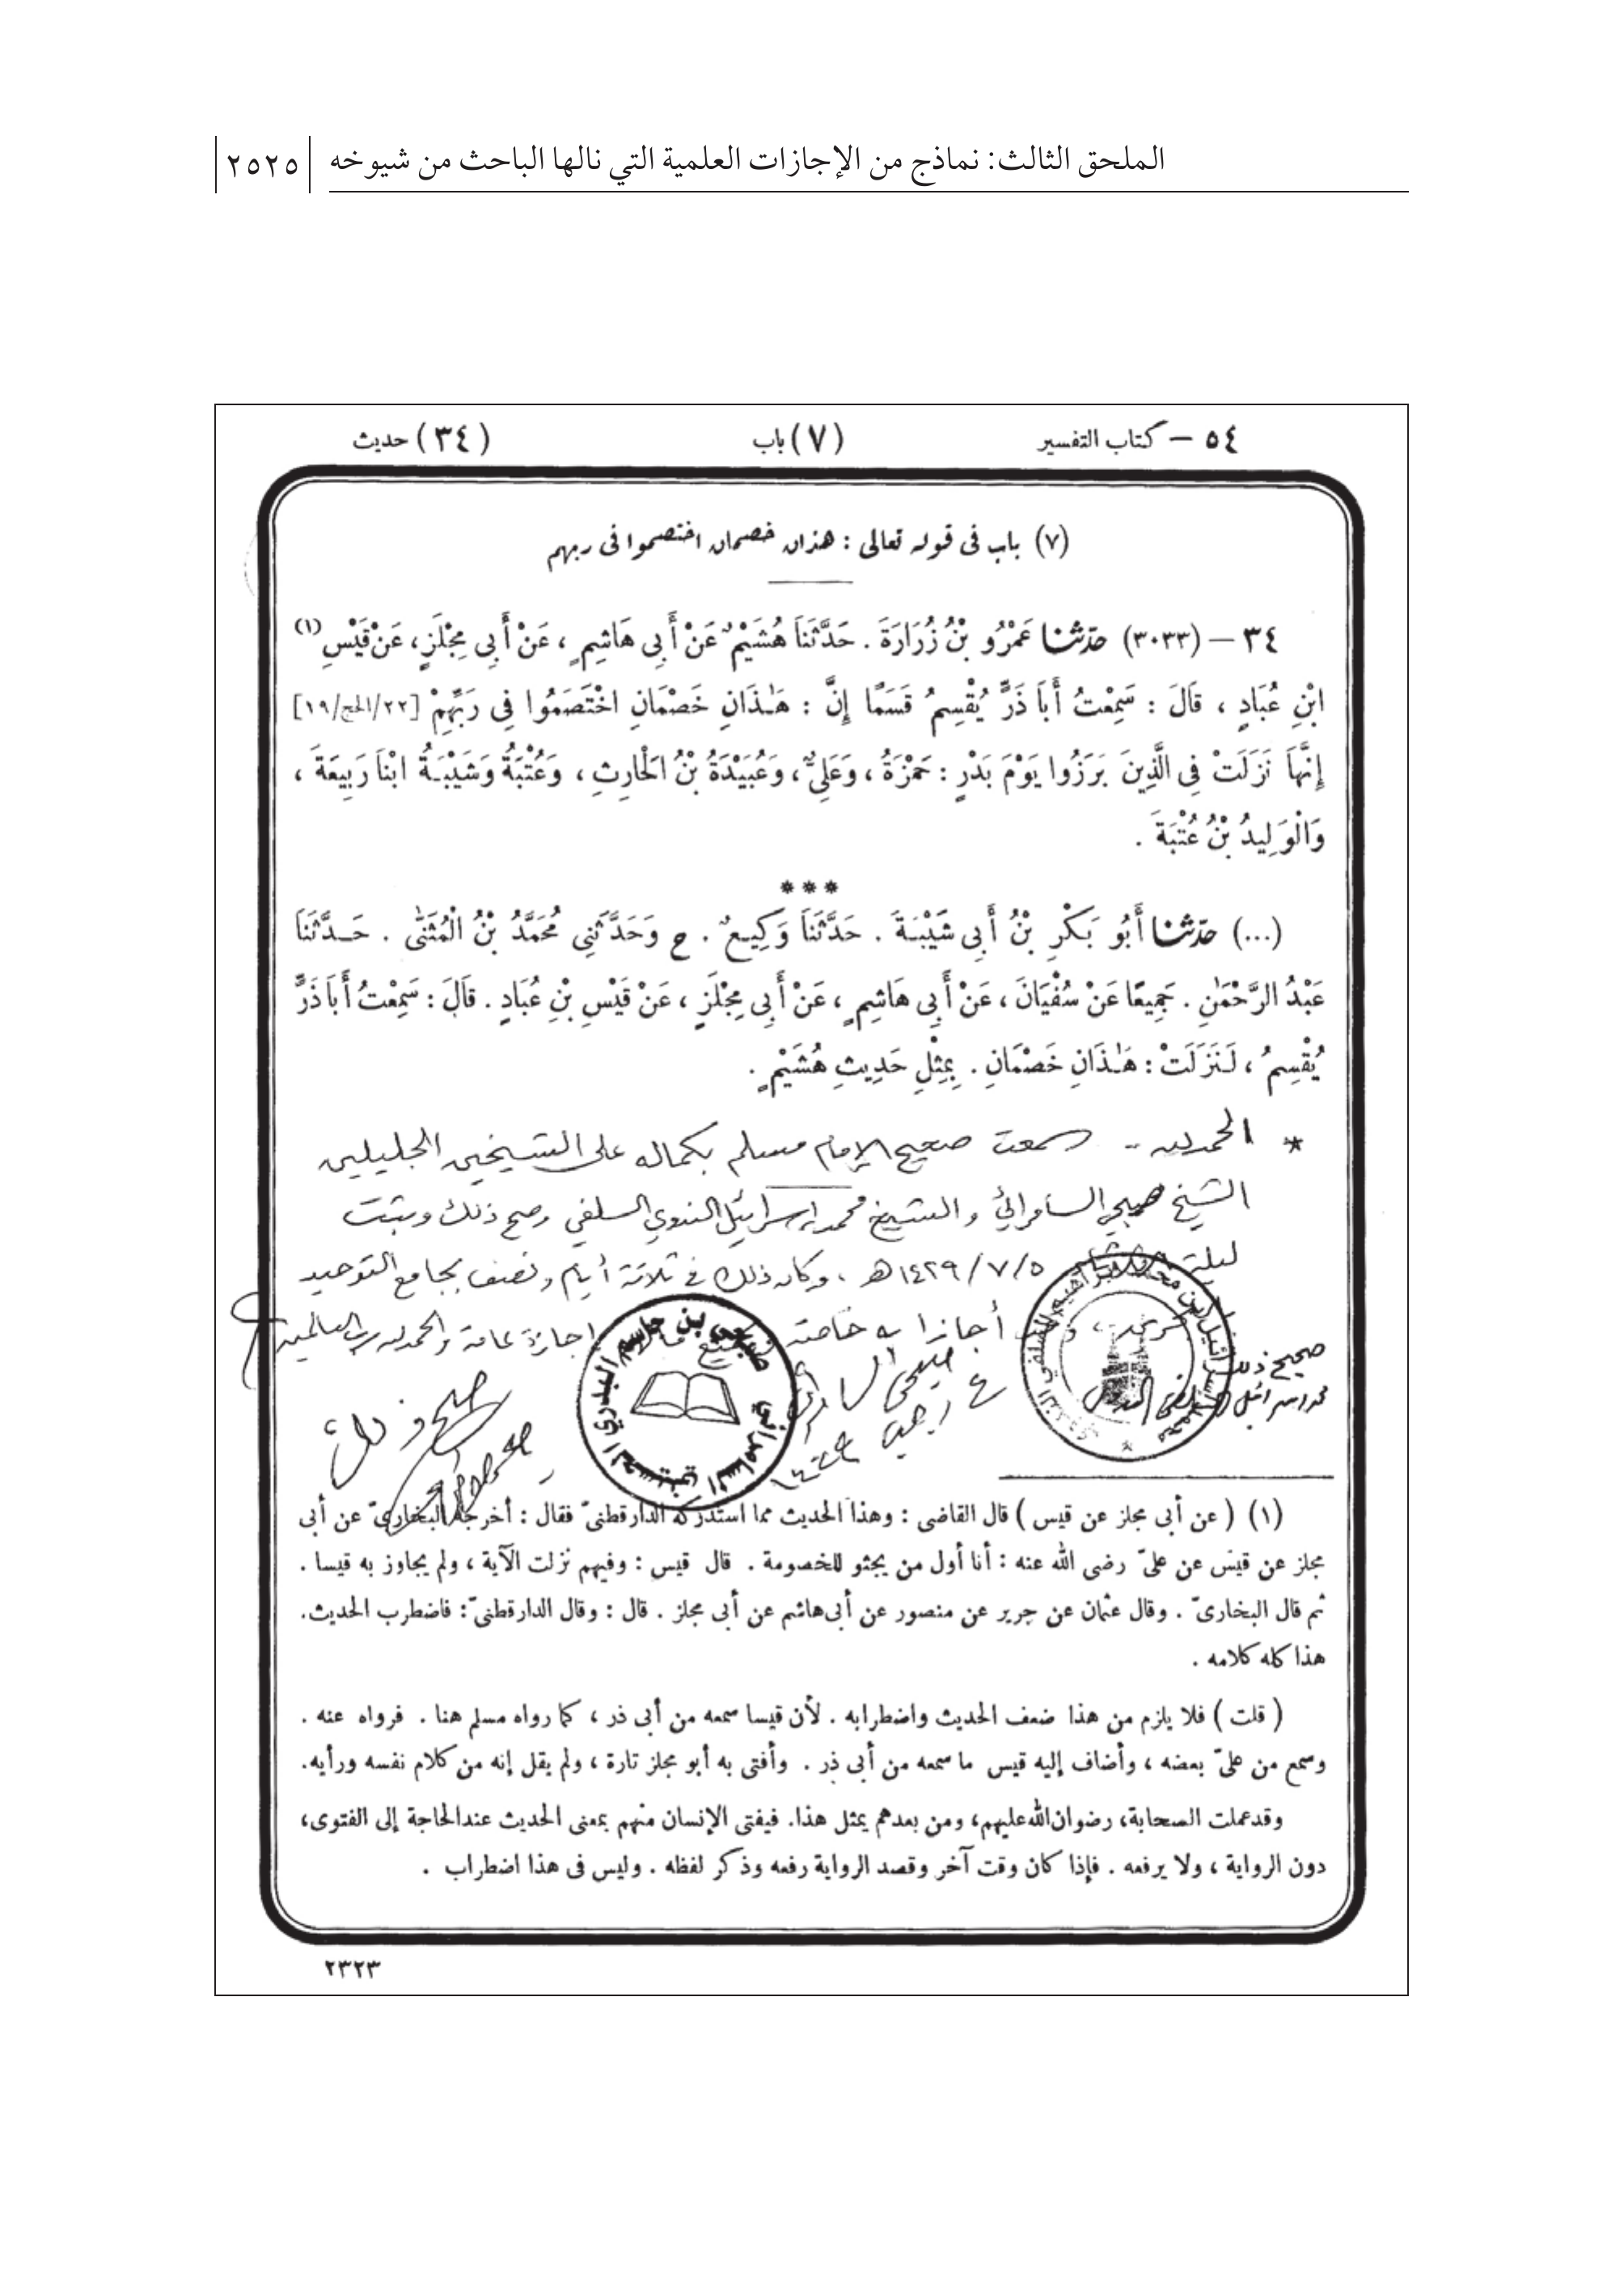 الملحق الثالث: نماذج من الإجازات العلمية التي نالها الباحث من شيوخه ٢٥٢٥
٥٤ – كتاب التفسير (٧) باب (٣٤) حديث
(٧) باب فى قوله تعالى : هذان خصمان اختصموا فى ربهم
٣٤ – (٣٠٣٣) حدّثنا عَمْرُو بْنُ زُرَارَةَ . حَدَّثَنَا هُشَيْمٌ عَنْ أَبِى هَاشِمٍ ، عَنْ أَبِى مِجْلَزٍ ، عَنْ قَيْسِ (١)
ابْنِ عُبَادٍ ، قَالَ : سَمِعْتُ أَبَا ذَرٍّ يُقْسِمُ قَسَمًا إِنَّ : هَـٰذَانِ خَصْمَانِ اخْتَصَمُوا فِى رَبِّهِمْ [٢٢/الحج/١٩]
إِنَّهَا نَزَلَتْ فِى الَّذِينَ بَرَزُوا يَوْمَ بَدْرٍ : حَمْزَةُ ، وَعَلِىٌّ ، وَعُبَيْدَةُ بْنُ الْحَارِثِ ، وَعُتْبَةُ وَشَيْبَةُ ابْنَا رَبِيعَةَ ،
وَالْوَلِيدُ بْنُ عُتْبَةَ .
***
(...) حدّثنا أَبُو بَكْرِ بْنُ أَبِى شَيْبَةَ . حَدَّثَنَا وَكِيعٌ . ح وَحَدَّثَنِى مُحَمَّدُ بْنُ الْمُثَنَّى . حَدَّثَنَا
عَبْدُ الرَّحْمَٰنِ . جَمِيعًا عَنْ سُفْيَانَ ، عَنْ أَبِى هَاشِمٍ ، عَنْ أَبِى مِجْلَزٍ ، عَنْ قَيْسِ بْنِ عُبَادٍ . قَالَ : سَمِعْتُ أَبَا ذَرٍّ
يُقْسِمُ ، لَنَزَلَتْ : هَـٰذَانِ خَصْمَانِ . بِمِثْلِ حَدِيثِ هُشَيْمٍ .
* الحمد لله .. سمعت صحيح الإمام مسلم بكماله على الشيخين الجليلين
الشيخ صبحي السامرائي والشيخ محمد إسرائيل الندوي السلفي وصح ذلك وثبت
ليلة ٥ / ٧ / ١٤٢٩هـ ، وكان ذلك في ثلاثة أيام ونصف بجامع التوحيد
أجازا به خاصة إجازة عامة والحمد لله رب العالمين
صحيح ذلك
محمد إسرائيل السلفي الندوي
صبحي السامرائي
صبحي بن جاسم البدري الحسيني السامرائي
صح ذلك
(١) ( عن أبى مجلز عن قيس ) قال القاضى : وهذا الحديث مما استدركه الدارقطنىّ فقال : أخرجه البخارىّ عن أبى
مجلز عن قيس عن علىّ رضى الله عنه : أنا أول من يجثو للخصومة . قال قيس : وفيهم نزلت الآية ، ولم يجاوز به قيسا .
ثم قال البخارىّ . وقال عثمان عن جرير عن منصور عن أبى هاشم عن أبى مجلز . قال : وقال الدارقطنىّ : فاضطرب الحديث.
هذا كله كلامه .
( قلت ) فلا يلزم من هذا ضعف الحديث واضطرابه . لأن قيسا سمعه من أبى ذر ، كما رواه مسلم هنا . فرواه عنه .
وسمع من علىّ بعضه ، وأضاف إليه قيس ما سمعه من أبى ذر . وأفتى به أبو مجلز تارة ، ولم يقل إنه من كلام نفسه ورأيه.
وقد عملت الصحابة، رضوان الله عليهم، ومن بعدهم بمثل هذا. فيفتى الإنسان منهم بمعنى الحديث عند الحاجة إلى الفتوى،
دون الرواية ، ولا يرفعه . فإذا كان وقت آخر وقصد الرواية رفعه وذكر لفظه . وليس فى هذا اضطراب .
٢٣٢٣